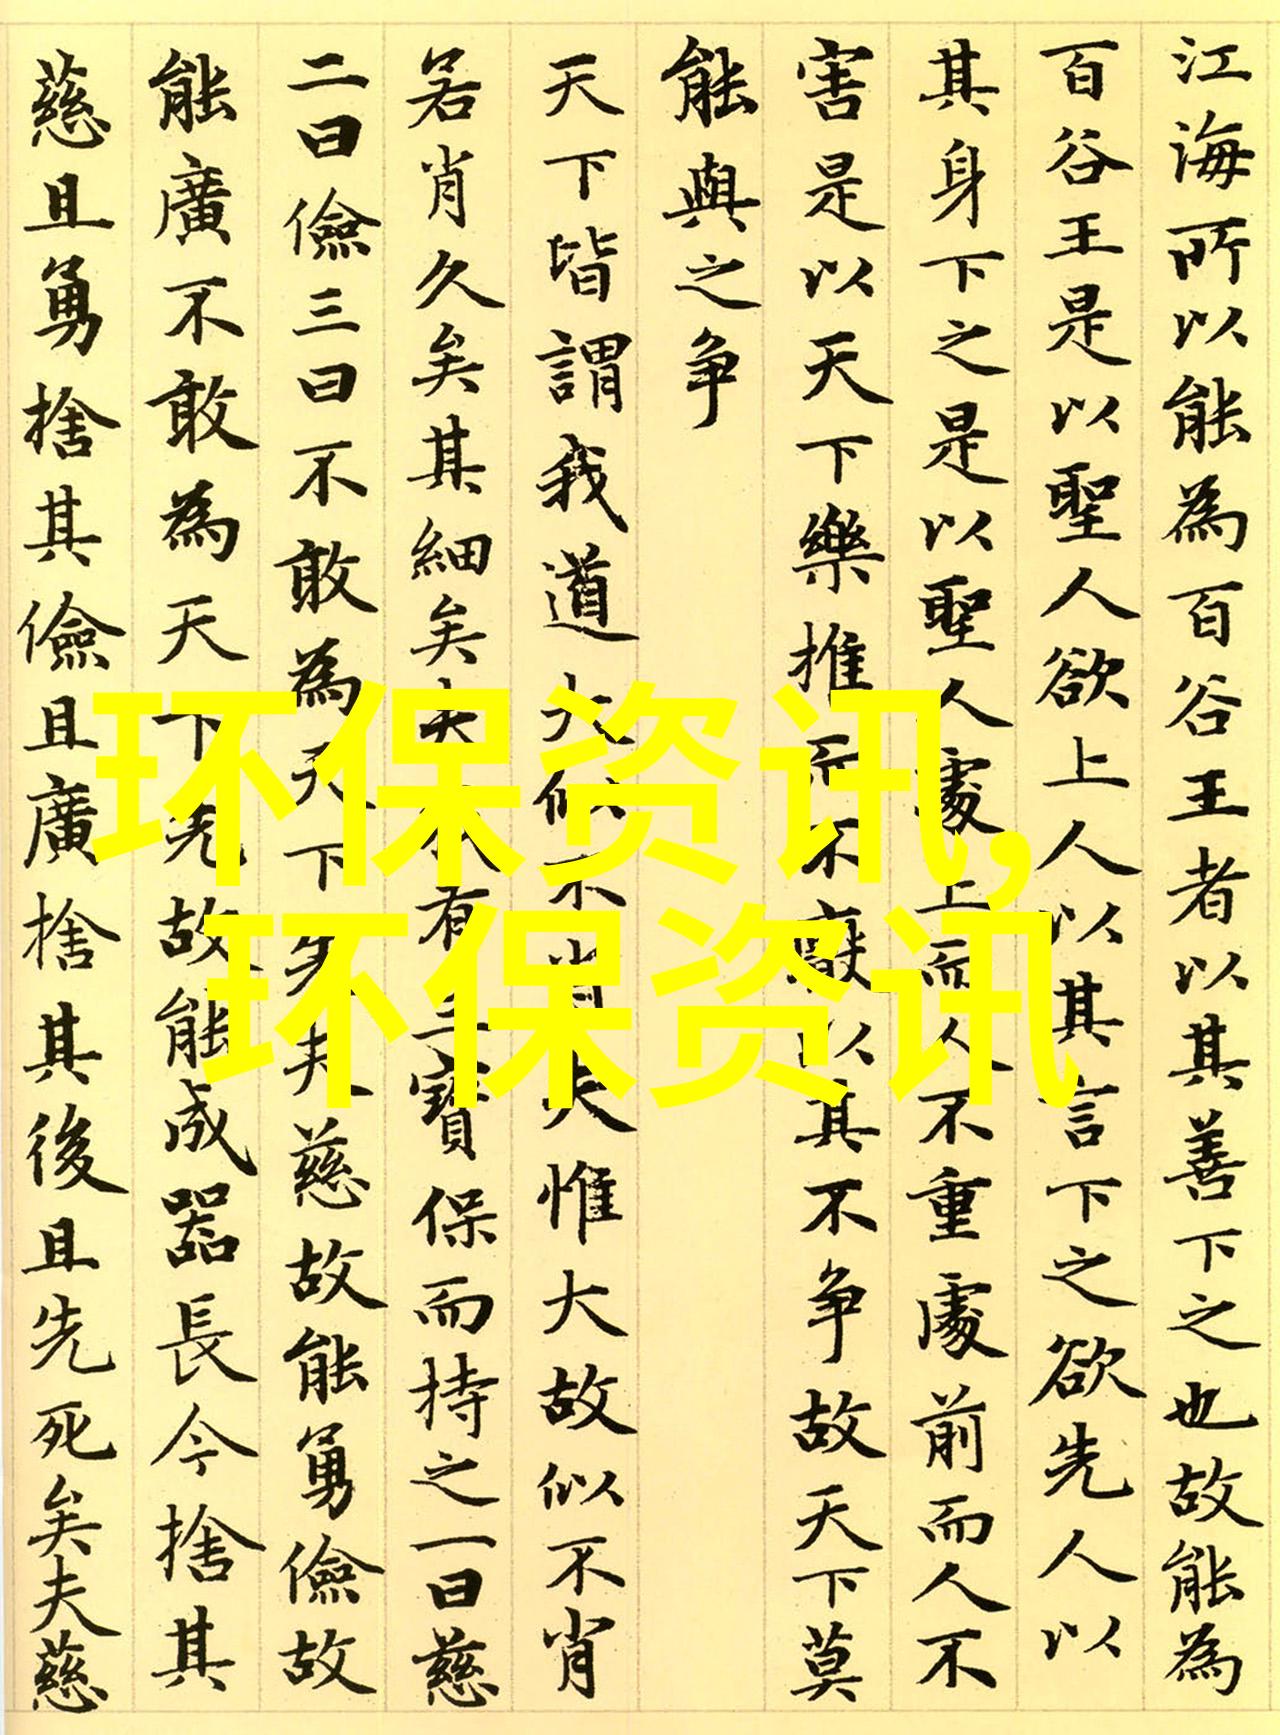 江海所以能為百谷王者以其善下之也故能為
百谷王是以聖人欲上人以其言下之欲先人以
其身下之是以聖人處上而人不重處前而人不
害是以天下樂推而不厭以其不争故天下莫
能與之争
天下皆謂我道大似不肖夫惟大故似不肖
若肖久矣其細矣夫我有三寶保而持之一曰慈
二曰儉三曰不敢為天下先夫慈故能勇儉故
能廣不敢為天下先故能成器長今捨其
慈且勇捨其儉且廣捨其後且先死矣夫慈
环保资讯,
环保资讯